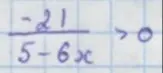 -21 / (5-6x) > 0